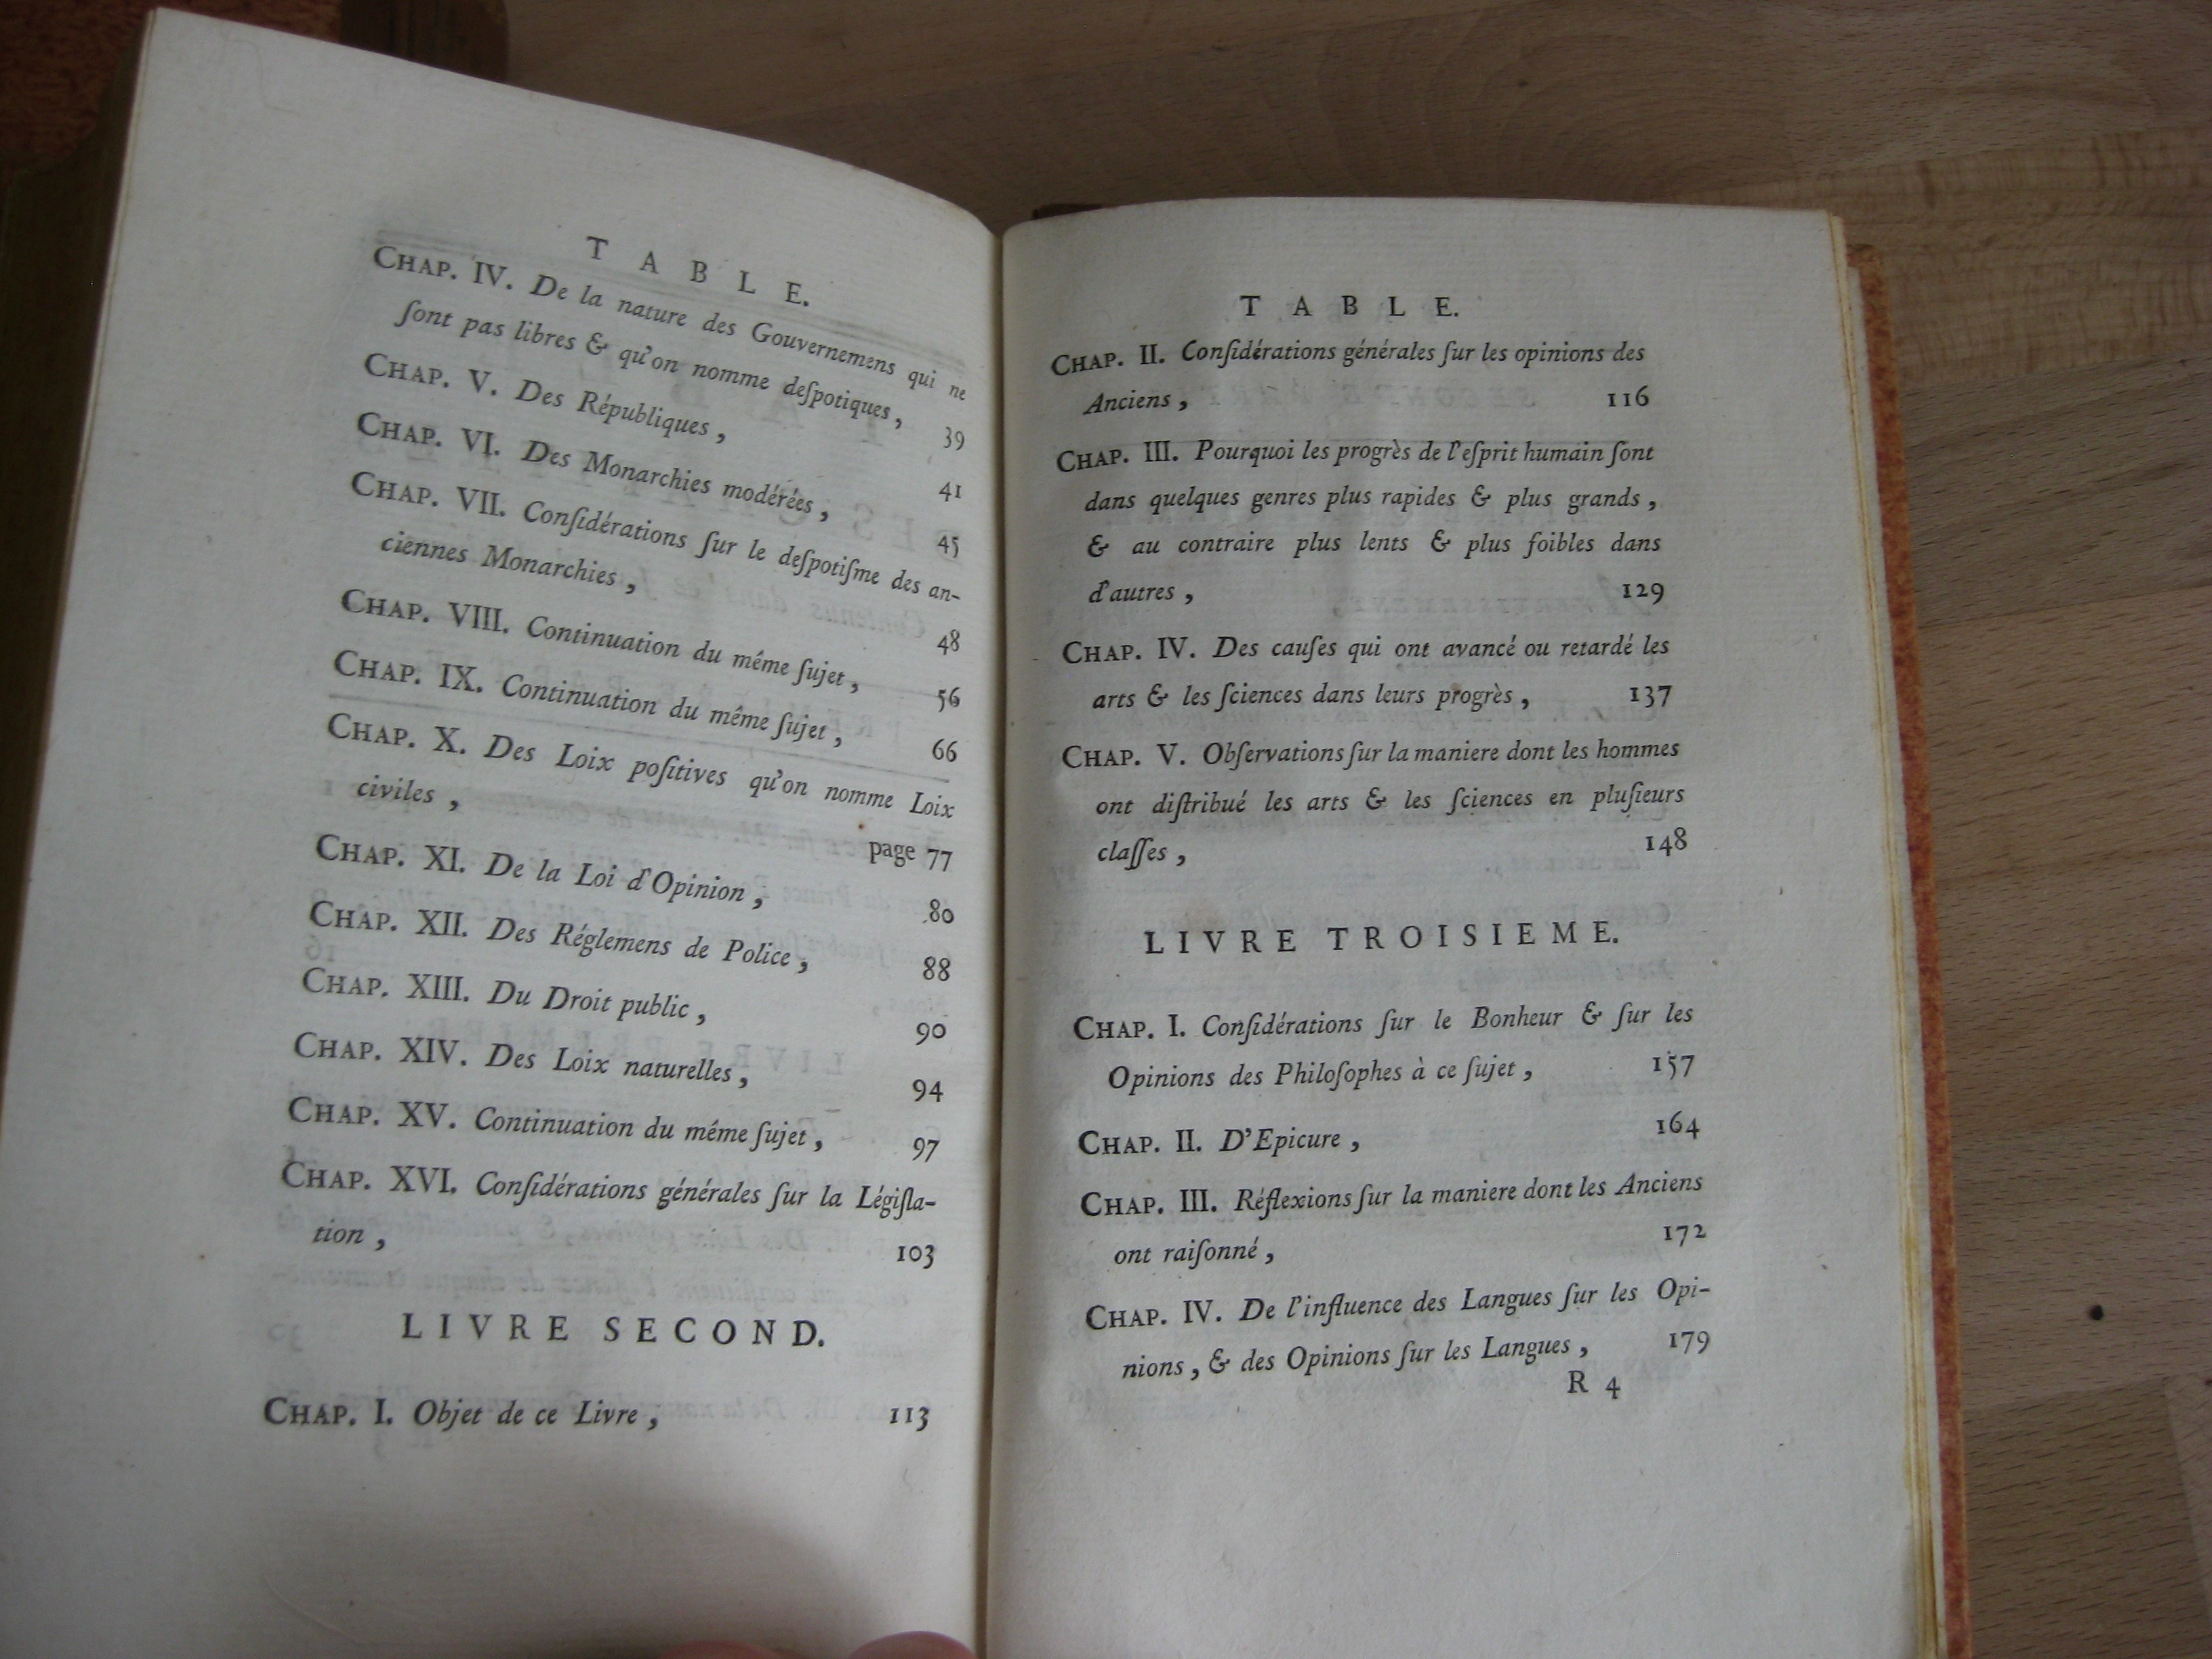 T A B L E.
CHAP. IV. De la nature des Gouvernemens qui ne
ſont pas libres & qu'on nomme deſpotiques, 39
CHAP. V. Des Républiques, 41
CHAP. VI. Des Monarchies modérées, 45
CHAP. VII. Conſidérations ſur le deſpotiſme des an-
ciennes Monarchies, 48
CHAP. VIII. Continuation du même ſujet, 56
CHAP. IX. Continuation du même ſujet, 66
CHAP. X. Des Loix poſitives qu'on nomme Loix
civiles, page 77
CHAP. XI. De la Loi d'Opinion, 80
CHAP. XII. Des Réglemens de Police, 88
CHAP. XIII. Du Droit public, 90
CHAP. XIV. Des Loix naturelles, 94
CHAP. XV. Continuation du même ſujet, 97
CHAP. XVI. Conſidérations générales ſur la Légiſla-
tion, 103
LIVRE SECOND.
CHAP. I. Objet de ce Livre, 113
T A B L E.
CHAP. II. Conſidérations générales ſur les opinions des
Anciens, 116
CHAP. III. Pourquoi les progrès de l'eſprit humain ſont
dans quelques genres plus rapides & plus grands,
& au contraire plus lents & plus foibles dans
d'autres, 129
CHAP. IV. Des cauſes qui ont avancé ou retardé les
arts & les ſciences dans leurs progrès, 137
CHAP. V. Obſervations ſur la maniere dont les hommes
ont diſtribué les arts & les ſciences en pluſieurs
claſſes, 148
LIVRE TROISIEME.
CHAP. I. Conſidérations ſur le Bonheur & ſur les
Opinions des Philoſophes à ce ſujet, 157
CHAP. II. D'Epicure, 164
CHAP. III. Réflexions ſur la maniere dont les Anciens
ont raiſonné, 172
CHAP. IV. De l'influence des Langues ſur les Opi-
nions, & des Opinions ſur les Langues, 179
R 4